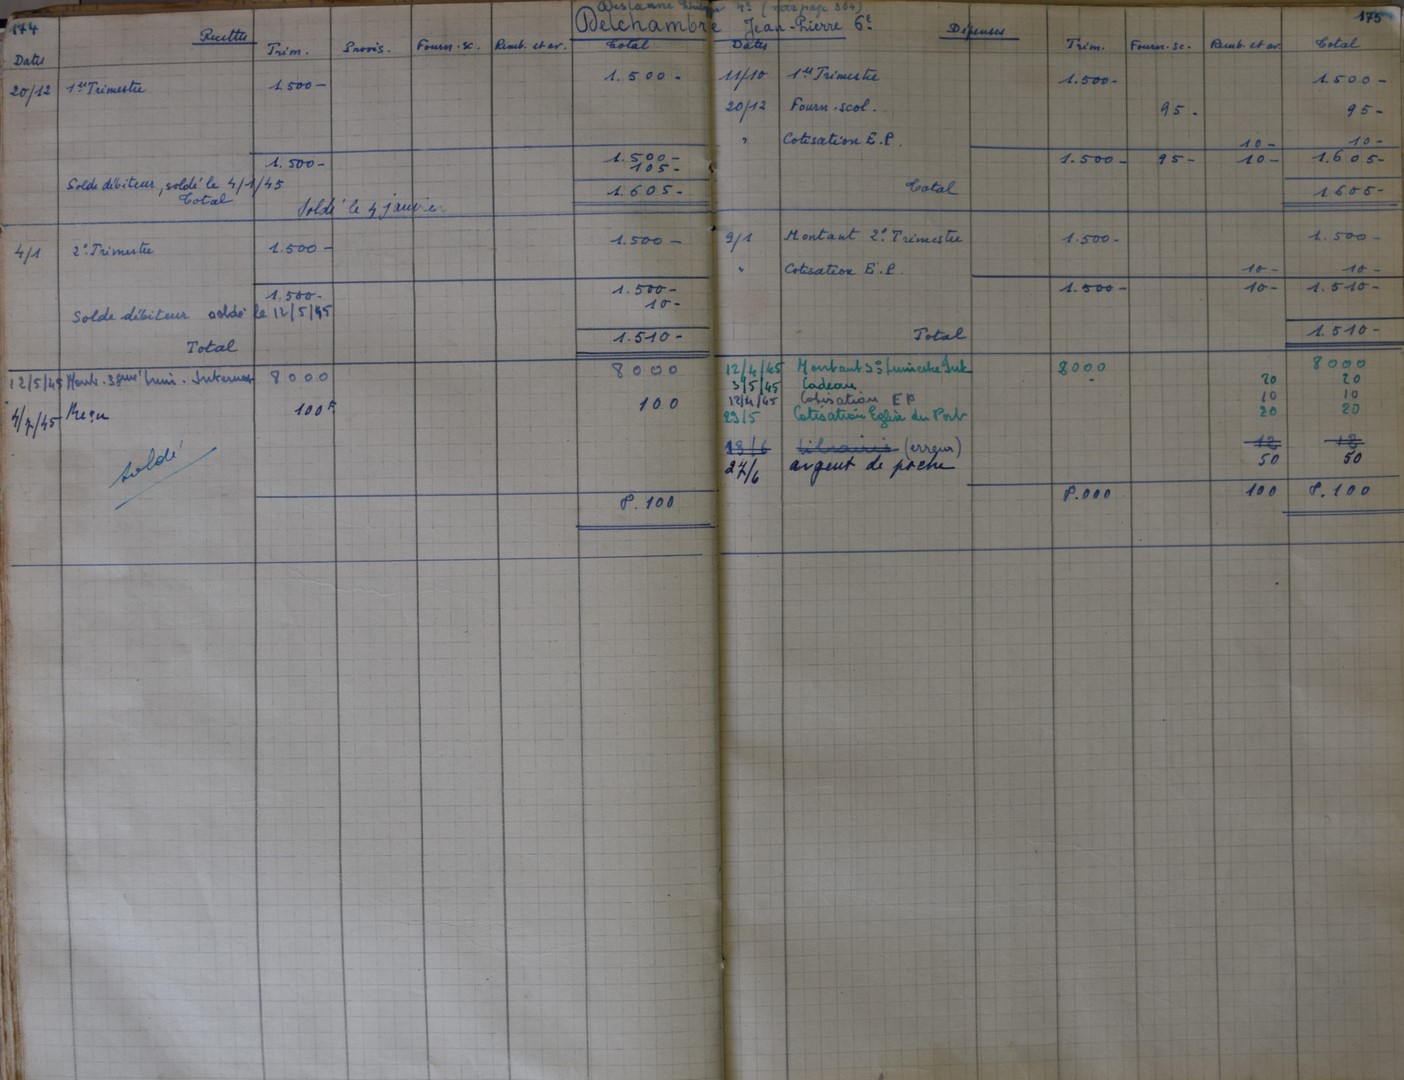 174
(voir page 304)
175
Delchambre Jean-Pierre 6e
Recettes
Dates Trim. Provis. Fourn. sc. Remb. et av. Total
20/12 1er Trimestre 1.500- 1.500-
1.500- 1.500-
105-
Solde débiteur, soldé le 4/1/45
Total 1.605-
Soldé le 4 janvier
4/1 2e Trimestre 1.500- 1.500-
1.500- 1.500-
10-
Solde débiteur soldé le 12/5/45
Total 1.510-
12/5/45 Mont. 8000 8000
4/7/45 Reçu 100F 100
soldé
8.100
Dépenses
Dates Trim. Fourn. sc. Remb. et av. Total
11/10 1er Trimestre 1.500- 1.500-
20/12 Fourn. scol. 95- 95-
" Cotisation E.P. 10- 10-
1.500- 95- 10- 1.605-
Total 1.605-
9/1 Montant 2e Trimestre 1.500- 1.500-
" Cotisation E.P. 10- 10-
1.500- 10- 1.510-
Total 1.510-
12/4/45 Montant 3e trimestre Int 8000 8000
3/5/45 Cadeau 20 20
12/4/45 Cotisation EP 10 10
29/5 Cotisation Eglise du Port 20 20
18/6 Librairie (erreur) 12 12
27/6 argent de poche 50 50
8.000 100 8.100